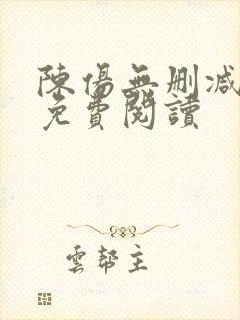 陳傷無刪減
免費閱讀
雲幫主